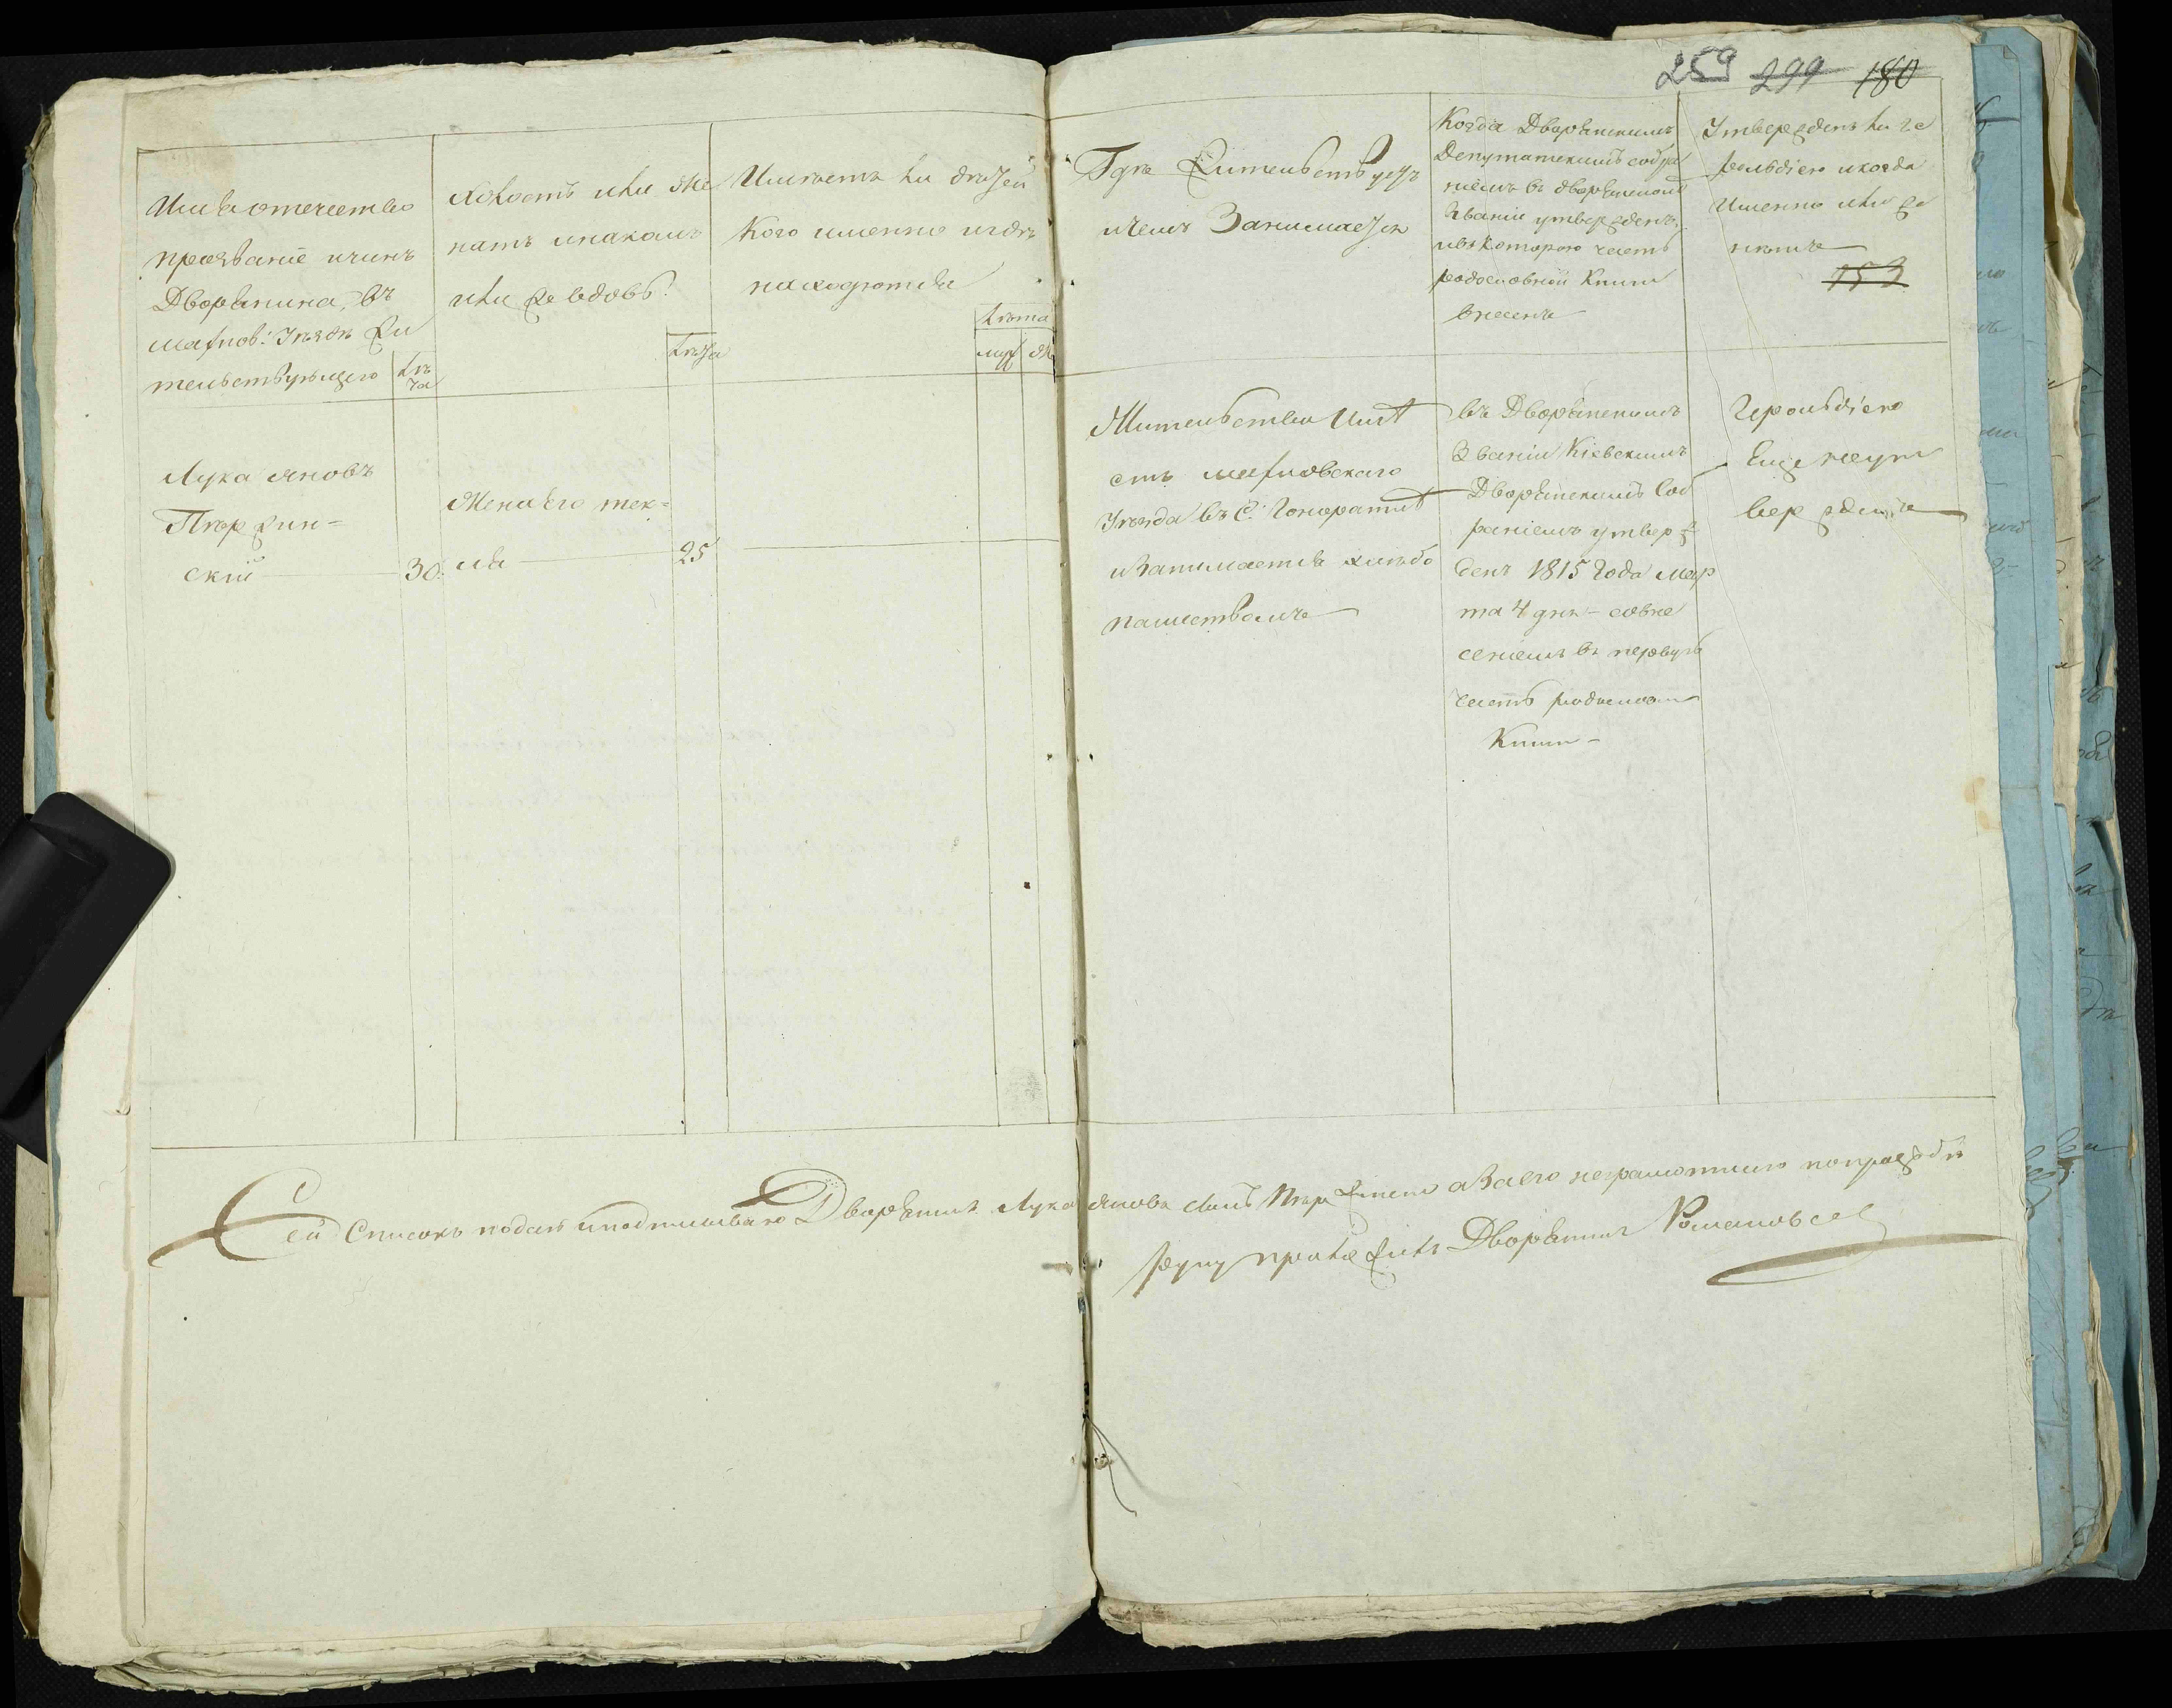 259 299 180
Имя отечество
прозваніе и чинъ
Дворянина, въ
махнов: Уѣздѣ жи
тельствующаго
лѣ
та
холостъ или же
натъ и на комъ
или же вдовъ?
лѣта
Имѣетъ ли дѣтей
Кого именно и гдѣ
находются
лѣта
муж
же
Гдѣ жительствуетъ
и чемъ Занимается
Когда Дворянскимъ
Депутатскимъ собра
ніемъ въ дворянскомъ
Званіи утвержденъ,
и въ которою часть
родословной Книги
внесенъ
Утвержденъ ли ге
рольдіею и когда
Именно или же
нѣтъ
153
Лука Яновъ
Пѣржин=
скій 30.
Жена Его тек=
ля 25
Жительство Имѣ
етъ махновскаго
Уѣзда въ С:
и Занимается хлѣбо
пашествомъ
въ Дворянскимъ
Званіи Кіевскимъ
Дворянскимъ Соб
раніемъ утверж
денъ 1815 Года мар
та 4 дня – со вне
сеніемъ въ первую
часть родослов
Книги –
Герольдіею
Еще неут
вержденъ
Сей Списокъ подалъ и подписываю Дворянинъ Лука Яновъ Сынъ Пѣржинск а За его неграмотного по прозьби
руку приложилъ Дворянинъ